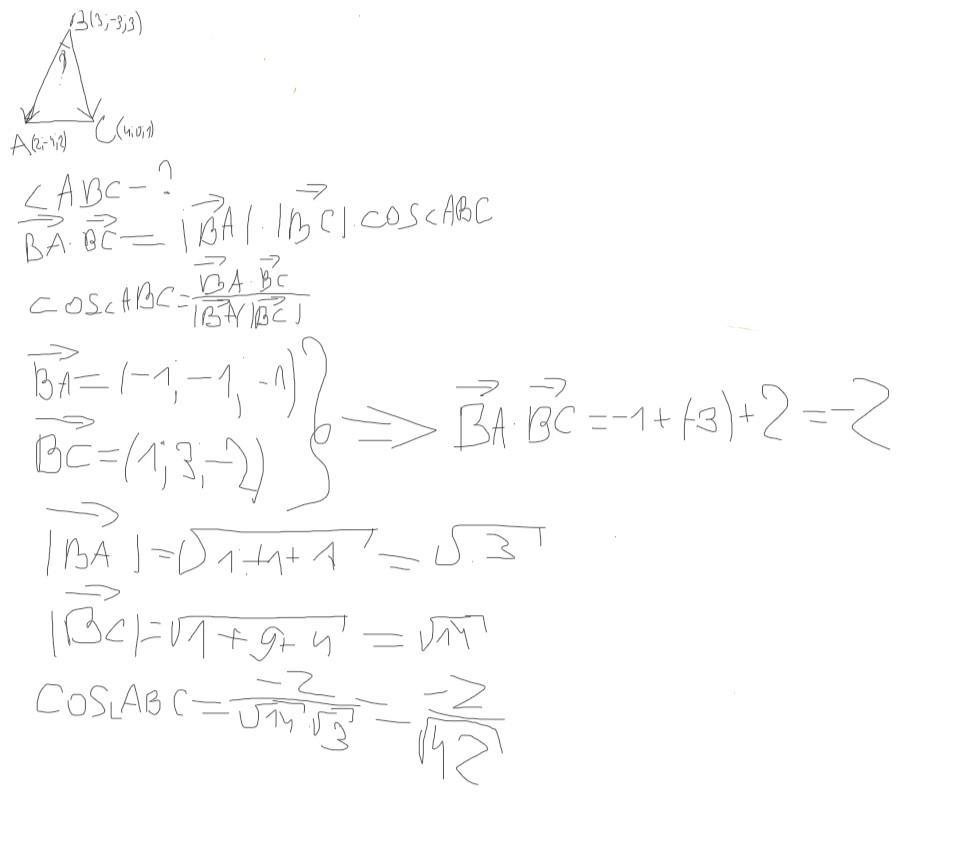 B(3;-3;3)
A(2;-4;2)
C(4;0;1)
∠ABC-?
BA⃗·BC⃗=|BA⃗|·|BC⃗|·cos∠ABC
cos∠ABC=(BA⃗·BC⃗)/(|BA⃗|·|BC⃗|)
BA⃗=(-1;-1;-1)
BC⃗=(1;3;-2)
} ⇒ BA⃗·BC⃗=-1+(-3)+2=-2
|BA⃗|=√(1+1+1)=√3
|BC⃗|=√(1+9+4)=√14
COS∠ABC=-2/(√14·√3)=-2/√42